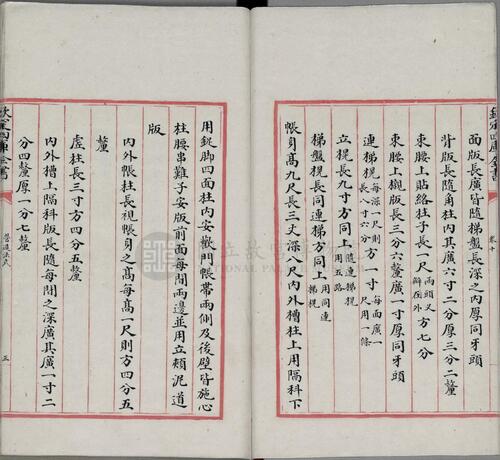 欽定四庫全書 卷十
面版長廣皆隨盤長深之内厚同牙頭
背版長隨角柱内其廣六寸二分厚三分二釐
束腰上貼絡柱子長一尺兩頭叉瓣在外方七分
束腰上櫬版長三分六釐廣一寸厚同牙頭
連梯榥每深一尺則長八寸六分方一寸每面廣一尺用一條
立榥長九寸方同上隨連梯榥用五路
梯盤榥長同連梯方同上用同連梯榥
帳身高九尺長三丈深八尺内外槽柱上用隔科下
用鋜脚四面柱内安歡門帳帶兩側及後壁皆施心
柱腰串難子安版前面每間兩邊並用立頰泥道
版
内外帳柱長視帳身之高每高一尺則方四分五
釐
虛柱長三寸方四分五釐
内外槽上隔科版長隨每間之深廣其廣一寸二
分四釐厚一分七釐
欽定四庫全書 營造法式 五